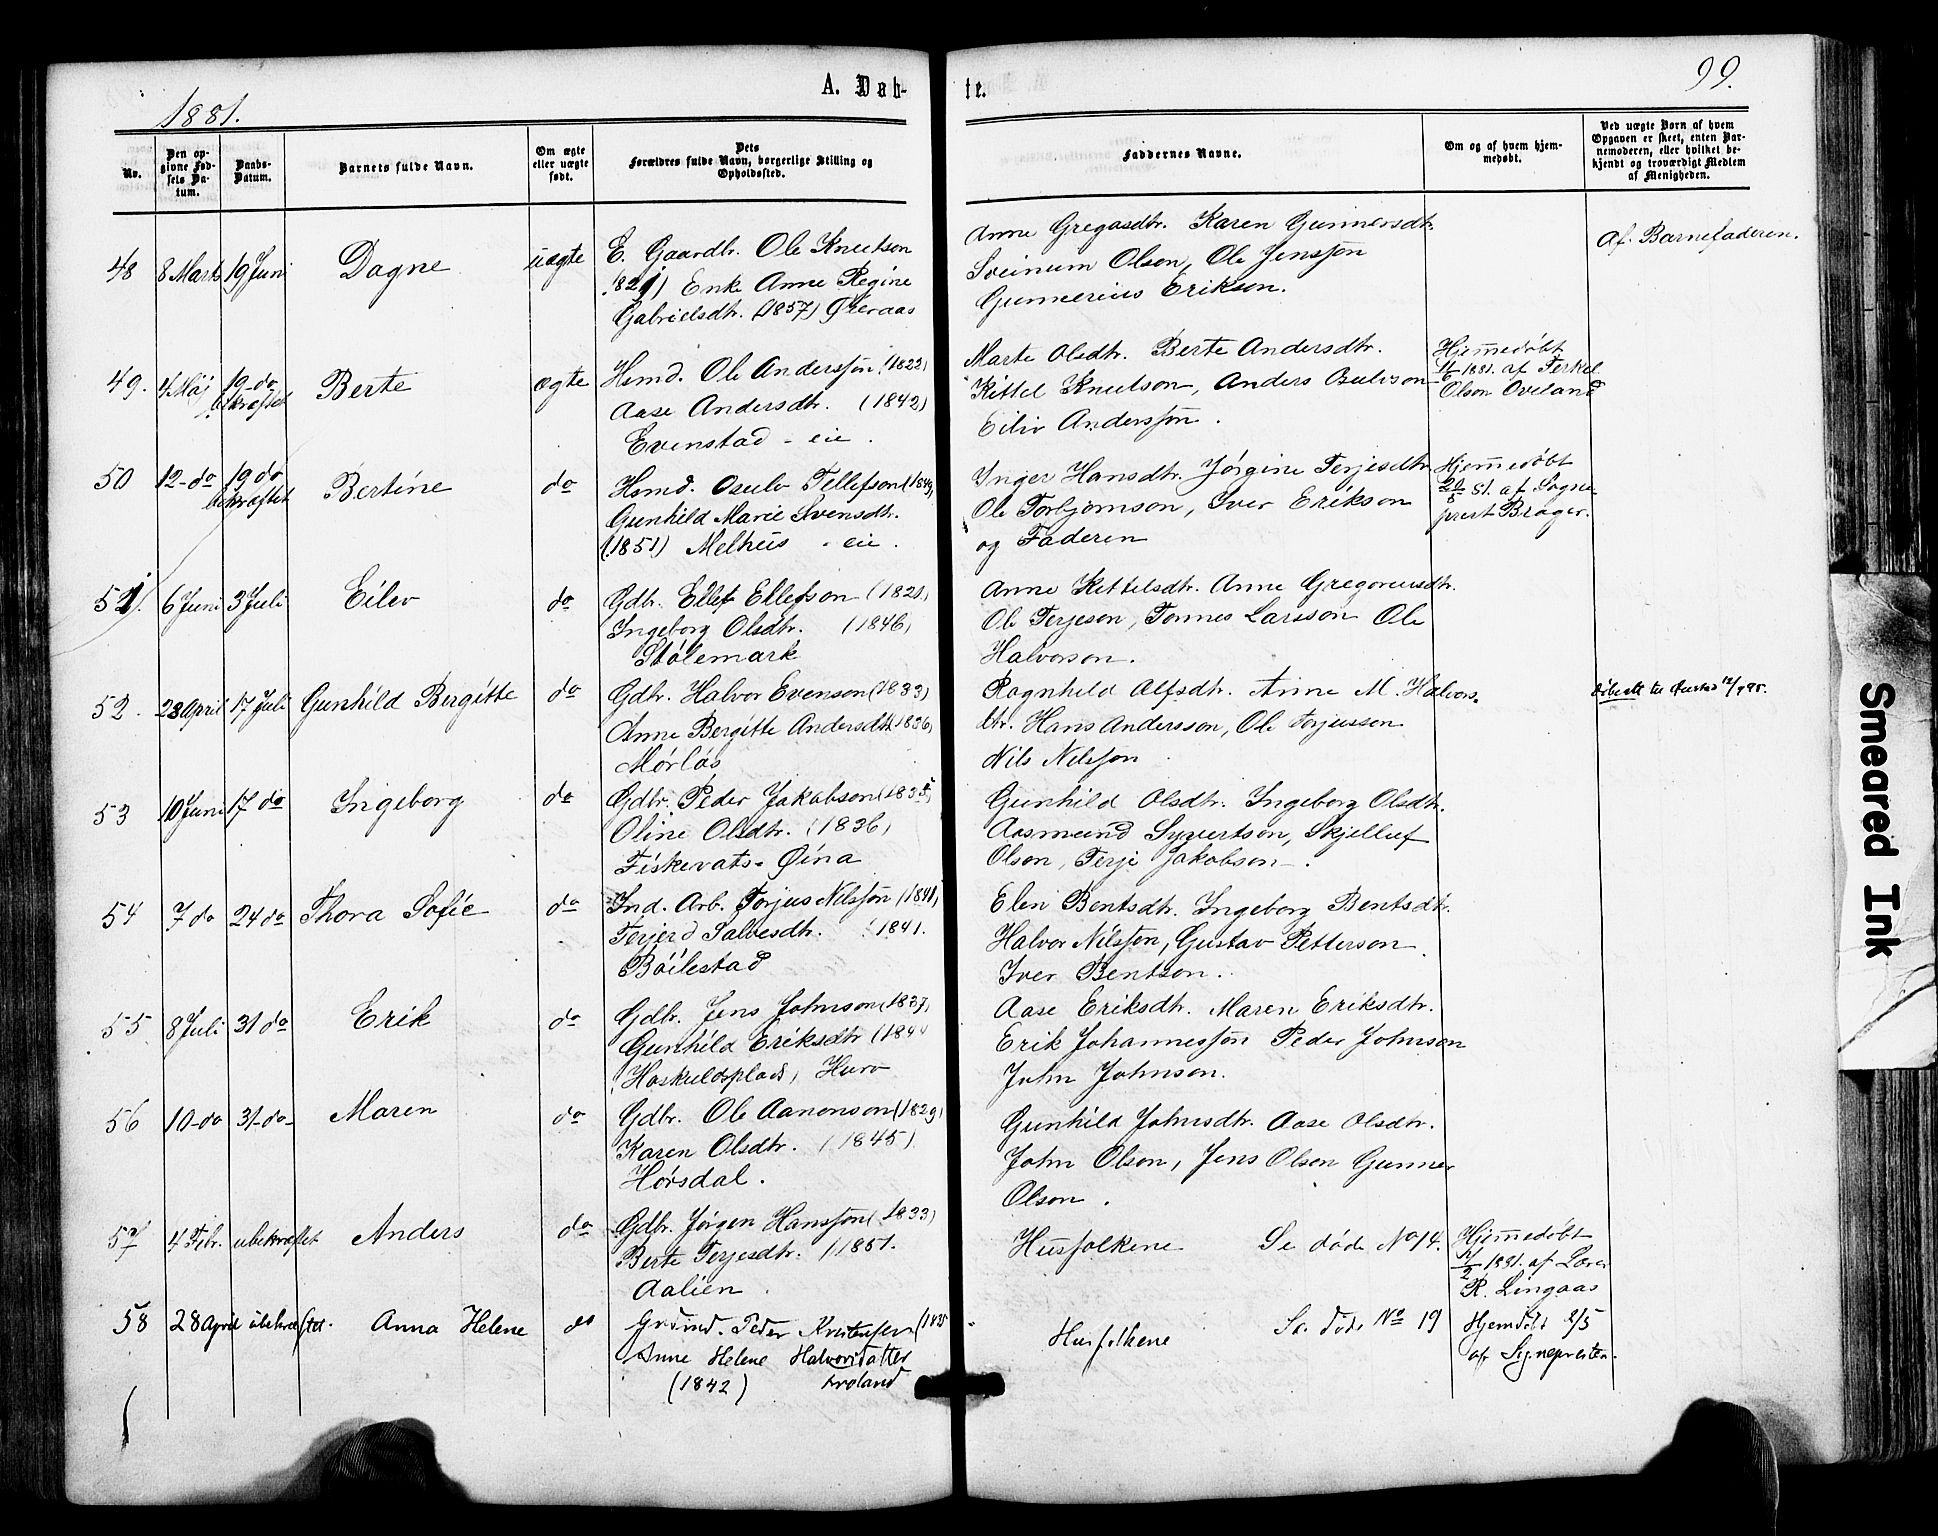 1881.
A. Døb-
te.
99.
No.
Den op-
givne Fød-
sels Da-
tum.
Daabs-
Datum.
Barnets fulde Navn.
Om ægte
eller uægte
født.
Dets
Forældres fulde Navn, borgerlige Stilling og
Opholdssted.
Faddernes Navne.
Om og af hvem hjem-
medøbt.
Ved uægte Børn af hvem
Opgaven er skeet, enten Bar-
nemoderen, eller hvilket be-
kjendt og troværdigt Medlem
af Menigheden.
48 8 Marts 19 Juni Dagne uægte
E. Gaardbr. Ole Knutson
1821) Enke Anne Regine
Gabrielsdtr. (1857)
Anne Gregasdtr. Karen Gunnersdtr.
Sveinum Olson, Ole Jensson
Gunnerius Erikson.
Af Barnefaderen.
49. 4 Maj 19-do bekræftet Berte ægte
Hsmd. Ole Andersson (1822)
Aase Andersdtr. (1842)
Evenstad - eie.
Marte Olsdtr. Berte Andersdtr.
Kittel Knutson, Anders
Eiliv Andersson.
Hjemmedøbt
1881. af Terkel
Olson Oveland
50 12-do 19 do bekræftet Bertine do
Hsmd. Osulv Tellefson (1849)
Gunhild Marie Svensdtr.
(1851) Melhus - eie.
Inger Hansdtr. Jørgine Terjesdtr.
Ole Torbjørnson, Iver Erikson
og Faderen
Hjemmedøbt
20/5 81. af Sogne-
prest Brager.
51. 6 Juni 3 Juli Eilev do
Gdbr. Ellef Ellefson (1821)
Ingeborg Olsdtr. (1846)
Stølemark
Anne Kittelsdtr. Anne Gregoriusdtr.
Ole Terjeson, Tønnes Larsson Ole
Halvorson.
52. 28 April 17 Juli Gunhild Bergitte do
Gdbr. Halvor Evenson (1833)
Anne Bergitte Andersdtr. 1836)
Mørlås
Ragnhild Alfsdtr. Anne M. Halvors-
dtr. Hans Andersson, Ole Torjussen
Nils Nilsson
53 10 Juni 17 do Ingeborg do
Gdbr. Peder Jakobson (1835)
Oline Olsdtr. (1836)
Fiskevats-Øina
Gunhild Olsdtr. Ingeborg Olsdtr.
Aasmund Syvertson, Skjelluf
Olson, Terje Jakobson.
54 7 do 24 do Thora Sofie do
Ind. Arb. Torjus Nilsson (1841)
Terjerd Salvesdtr. (1841.
Bøilestad
Elin Bentsdtr. Ingeborg Bentsdtr.
Halvor Nilsson, Gustav Petterson
Iver Bentson.
55 8 Juli 31 do Erik do
Gdbr. Jens Johnson (1837)
Gunhild Eriksdtr (1844
Haskuldsplads, Hurv
Aase Eriksdtr. Maren Eriksdtr.
Erik Johannesson Peder Johnson
John Johnson.
56 10-do 31-do- Maren do
Gdbr. Ole Aanonson (1829)
Karen Olsdtr. (1845)
Hørsdal.
Gunhild Johnsdtr. Aase Olsdtr.
John Olson, Jens Olson Gunner
Olson.
57 4 Febr. ubekræftet Anders do
Gdbr. Jørgen Hansson (1833)
Berte Terjesdtr. (1851.
Aalien.
Husfolkene Se døde No 14.
Hjemmedøbt
1881. af Lærer
R. Lingaas
58 28 April ubekræftet. Anna Helene do
Peder Kristensen (1835
Anne Helene Halvorsdatter
(1842) Froland
Husfolkene Se døde No 19
Hjemdøbt 2/5
af Sognepresten.
Smeared Ink